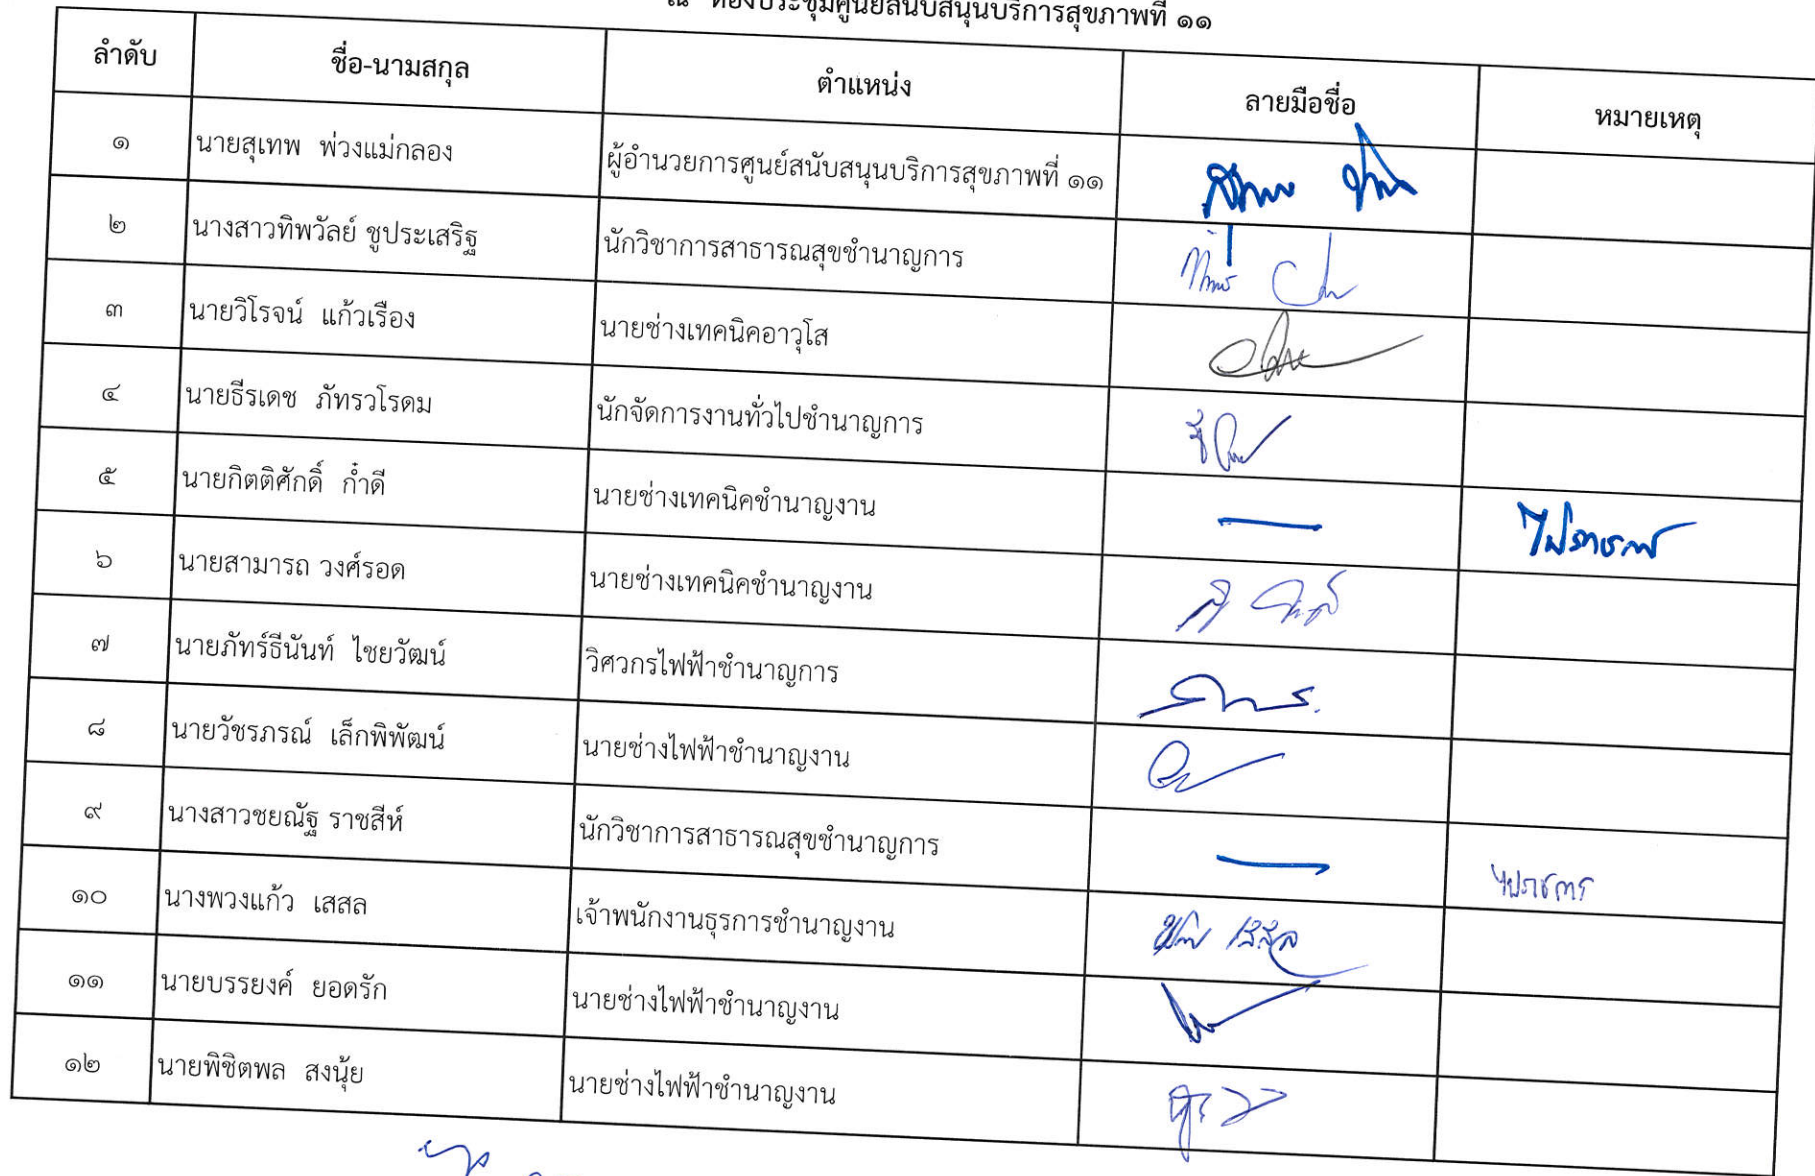 ณ ห้องประชุมศูนย์สนับสนุนบริการสุขภาพที่ ๑๑
ลำดับ ชื่อ-นามสกุล ตำแหน่ง ลายมือชื่อ หมายเหตุ
๑ นายสุเทพ พ่วงแม่กลอง ผู้อำนวยการศูนย์สนับสนุนบริการสุขภาพที่ ๑๑
๒ นางสาวทิพวัลย์ ชูประเสริฐ นักวิชาการสาธารณสุขชำนาญการ
๓ นายวิโรจน์ แก้วเรือง นายช่างเทคนิคอาวุโส
๔ นายธีรเดช ภัทรวโรดม นักจัดการงานทั่วไปชำนาญการ
๕ นายกิตติศักดิ์ ก่ำดี นายช่างเทคนิคชำนาญงาน ไปราชการ
๖ นายสามารถ วงศ์รอด นายช่างเทคนิคชำนาญงาน
๗ นายภัทร์ธีนันท์ ไชยวัฒน์ วิศวกรไฟฟ้าชำนาญการ
๘ นายวัชรภรณ์ เล็กพิพัฒน์ นายช่างไฟฟ้าชำนาญงาน
๙ นางสาวชยณัฐ ราชสีห์ นักวิชาการสาธารณสุขชำนาญการ ไปราชการ
๑๐ นางพวงแก้ว เสสล เจ้าพนักงานธุรการชำนาญงาน
๑๑ นายบรรยงค์ ยอดรัก นายช่างไฟฟ้าชำนาญงาน
๑๒ นายพิชิตพล สงนุ้ย นายช่างไฟฟ้าชำนาญงาน